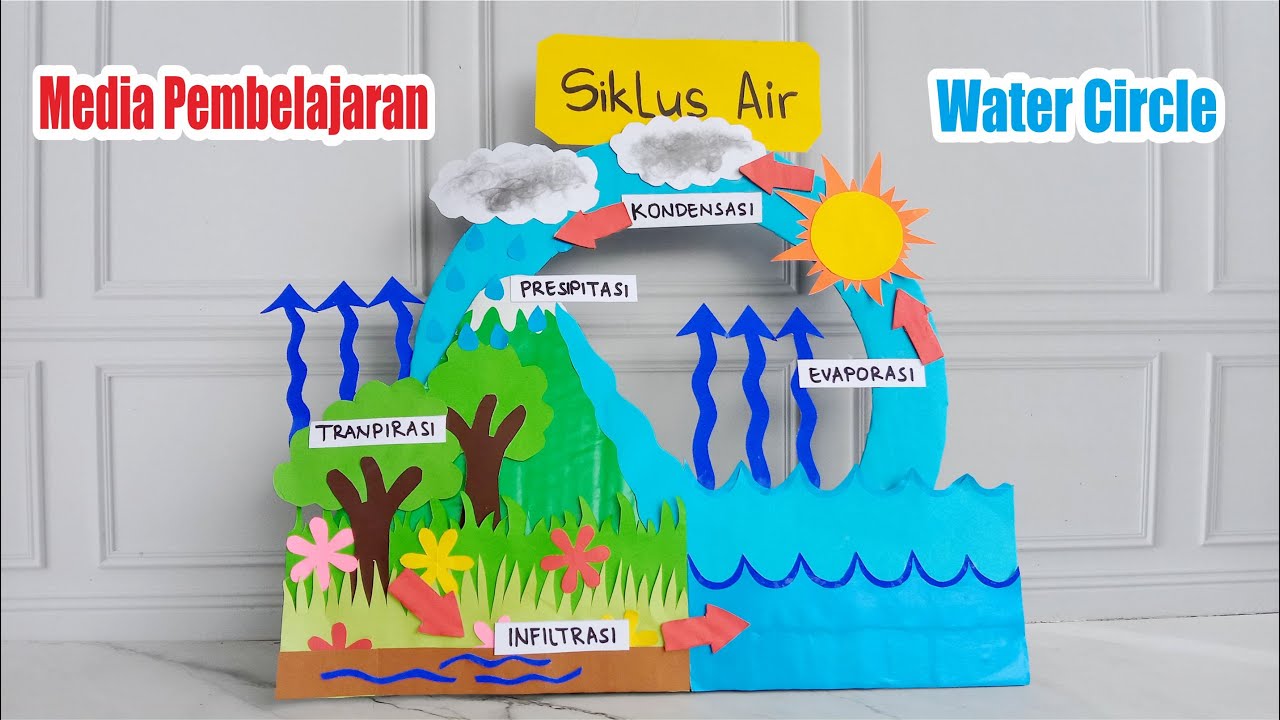 Media Pembelajaran
Siklus Air
Water Circle
KONDENSASI
PRESIPITASI
EVAPORASI
TRANPIRASI
INFILTRASI